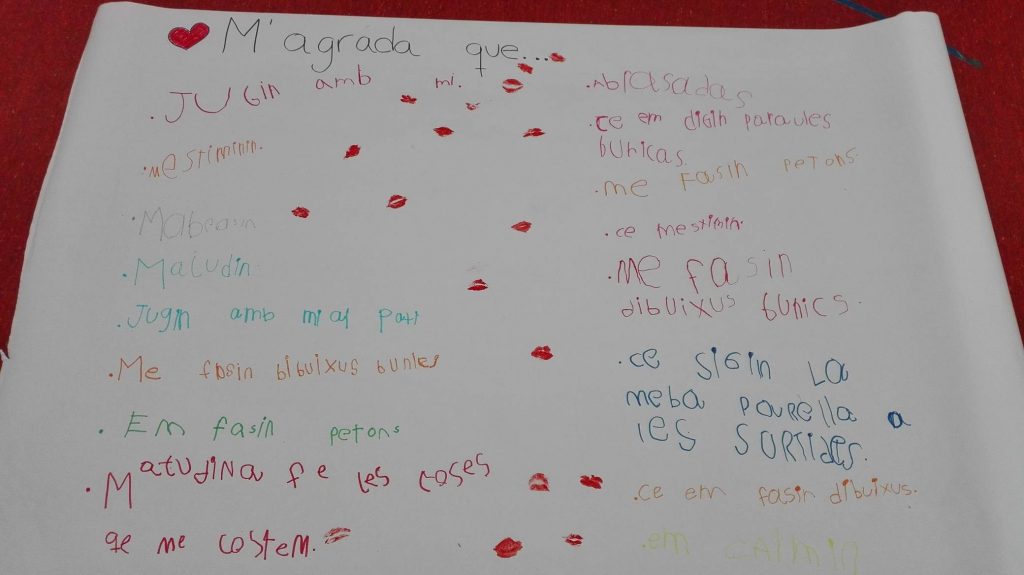 M'agrada que...
.JUGin amb mi.
.mestiminin.
.Mabrasin
.MaiUdin
.Jugin amb mi al pati
.Me fasin bibuixus bunics
.Em fasin petons
.MatUdiNa fe les coses
qe me costem.
.Abrasadas
.ce em digin paraules
bunicas.
.me fasin petons.
.ce mestimin.
.me fasin
dibuixus bunics.
.ce siGin La
meba parella a
les SORTides.
.ce em fasin dibuixus.
.em calmin